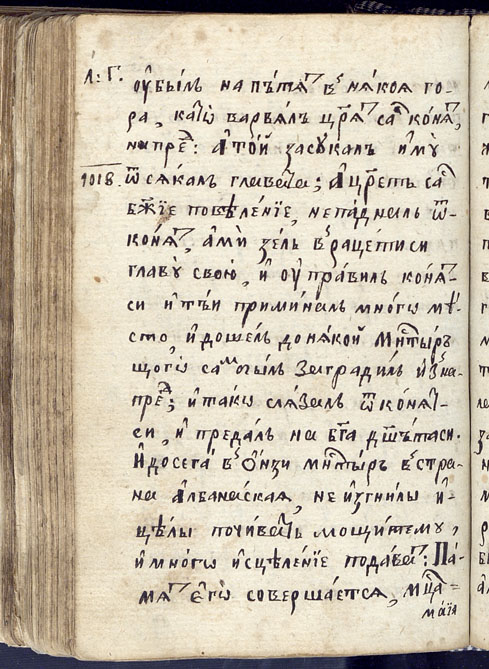 Л: Г.
оубылъ на пътят въ някоя го-
ра, като варвялъ царят са коня,
напред: а той засукалъ и му
1018. ѿсякалъ главата; а царетъ са
бжїе повѣленїе, непадналь ѿ-
коня, ами зель в рацетиси
главу свою, и оуправиль коня-
си и тъй приминаль много мѣ-
сто, и дошелъ донякой мнтырь
щого самъ былъ заградилъ изна-
пред; и тако слязалъ ѿ коня-
си, и предалъ на бга дшътаси.
И досега въ онзи мнтырь въ стра-
на албанская, неизгнилы и-
целы почиватъ мощитему,
и много исцеленїе подават: Па-
мят его совершается, мца
маїа